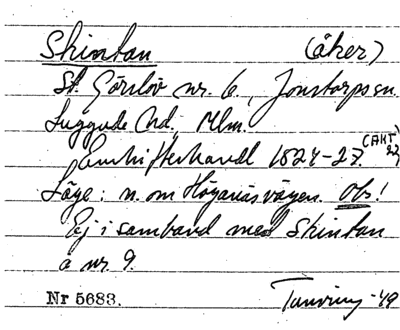 Skintan (åker)
St. Görslöv nr. 6., Jonstorps sn.
Luggude hd., Mlm.
Enskifteshandl 1824-27. (AKT 27)
Läge: n. om Höganäsvägen. Obs!
Ej i samband med Skintan
å nr 9.
Nr 5683. Tunving -49